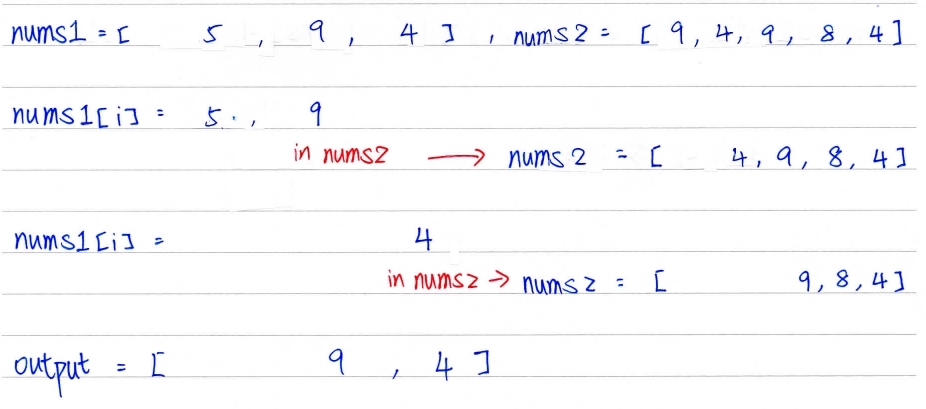 nums1 = [ 5 , 9 , 4 ] , nums2 = [ 9, 4, 9, 8, 4 ]
nums1[i] = 5 . , 9
in nums2 → nums2 = [ 4, 9, 8, 4 ]
nums1[i] = 4
in nums2 → nums2 = [ 9, 8, 4 ]
output = [ 9 , 4 ]